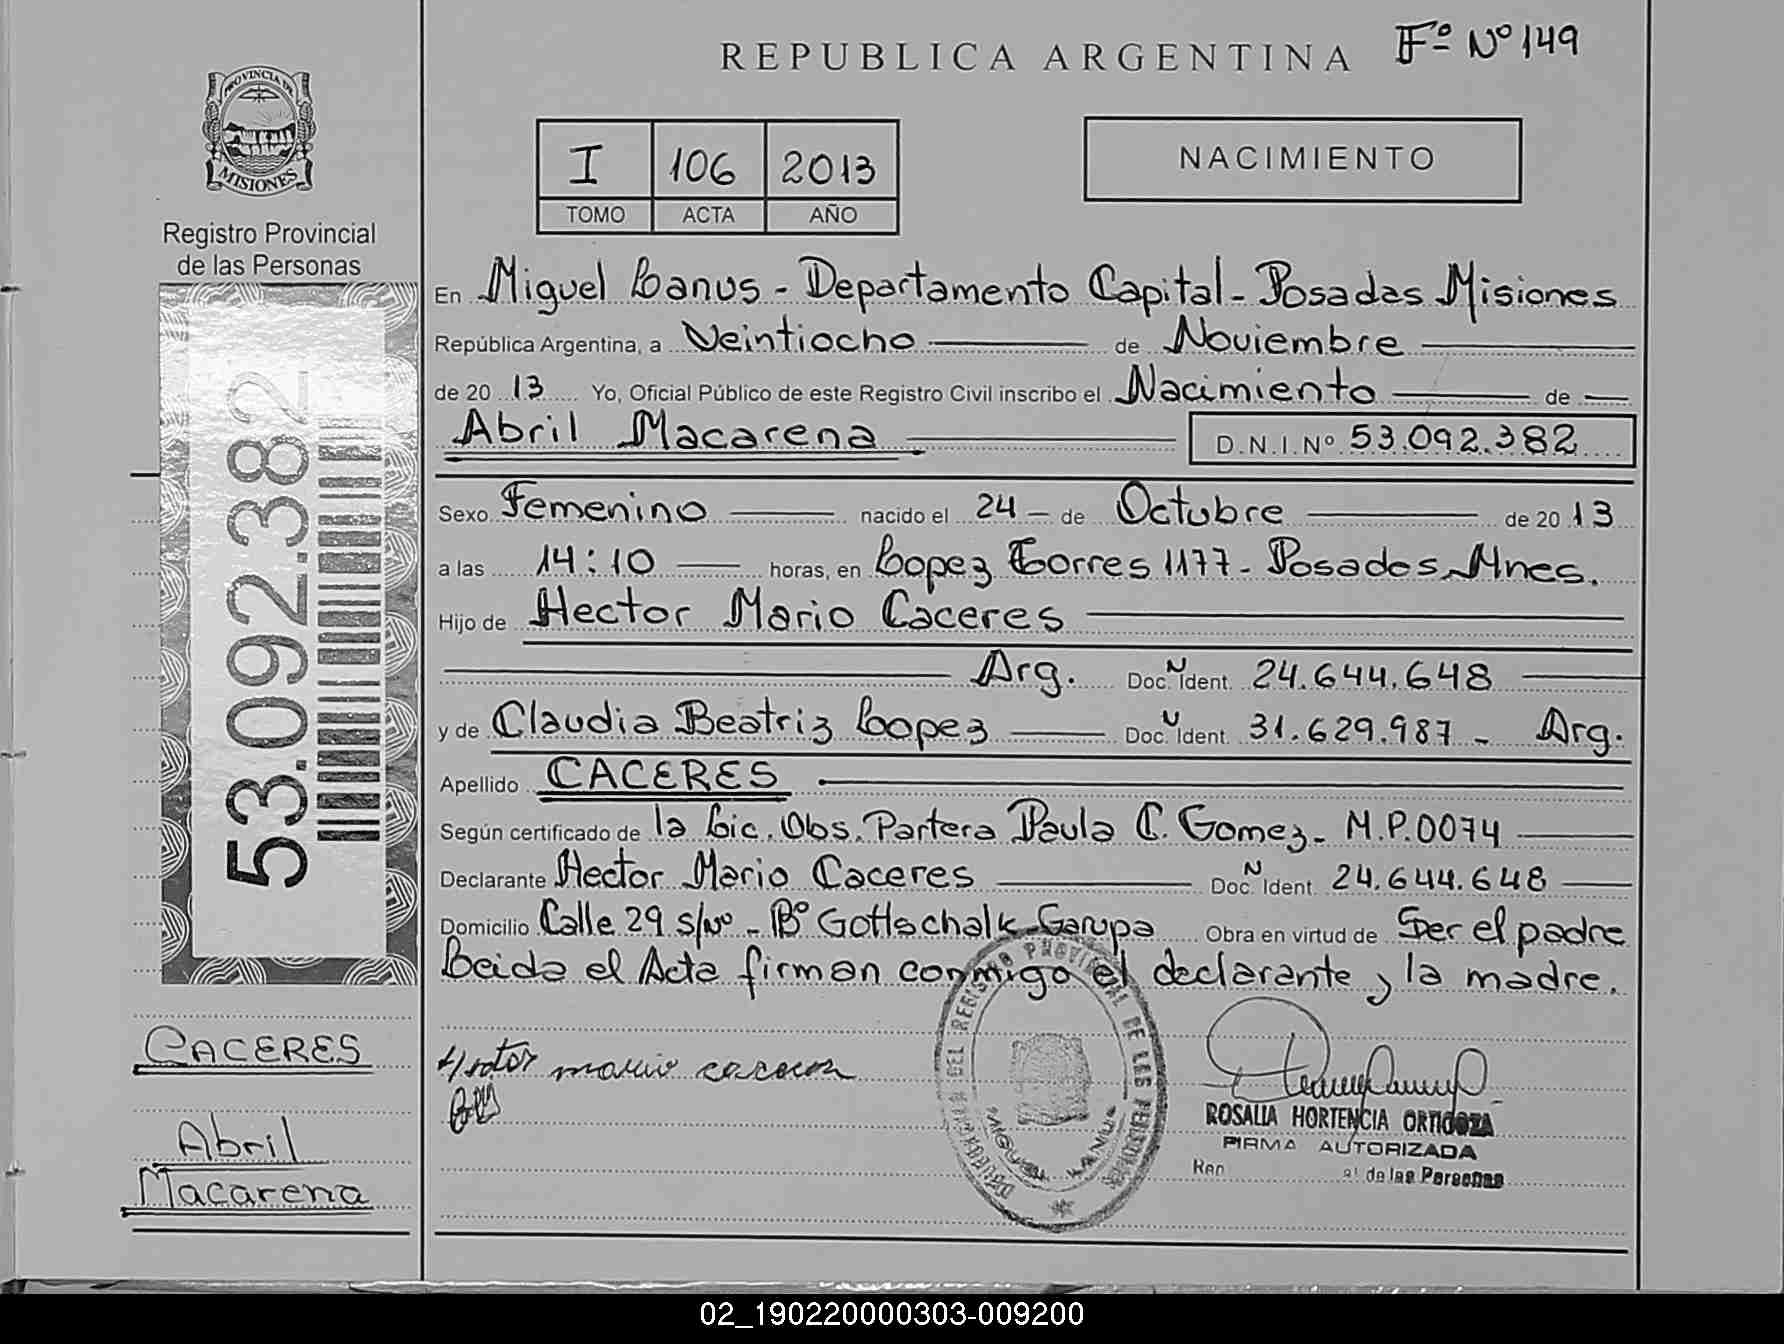 REPUBLICA ARGENTINA Fº Nº 149
PROVINCIA DE MISIONES
Registro Provincial
de las Personas
I 106 2013
TOMO ACTA AÑO
NACIMIENTO
53.092.382
En Miguel Lanus - Departamento Capital - Posadas Misiones
República Argentina, a Veintiocho de Noviembre
de 20 13 Yo, Oficial Público de este Registro Civil inscribo el Nacimiento de
Abril Macarena D.N.I. Nº 53.092.382
Sexo Femenino nacido el 24 - de Octubre de 20 13
a las 14:10 horas, en Lopez Torres 1177 - Posadas Mnes.
Hijo de Hector Mario Caceres
Arg. Doc. N Ident. 24.644.648
y de Claudia Beatriz Lopez Doc. N Ident. 31.629.987 - Arg.
Apellido CACERES
Según certificado de la Lic. Obs. Partera Paula C. Gomez - M.P.0074
Declarante Hector Mario Caceres Doc. N Ident. 24.644.648
Domicilio Calle 29 s/Nº - Bº Gottschalk - Garupa Obra en virtud de Ser el padre
Leida el Acta firman conmigo el declarante y la madre.
CACERES
Abril
Macarena
Hector mario caceres
DEL REGISTRO PROVINCIAL DE LAS PERSONAS
MIGUEL LANUS
ROSALIA HORTENCIA ORTIGOZA
FIRMA AUTORIZADA
de las Personas
02_190220000303-009200